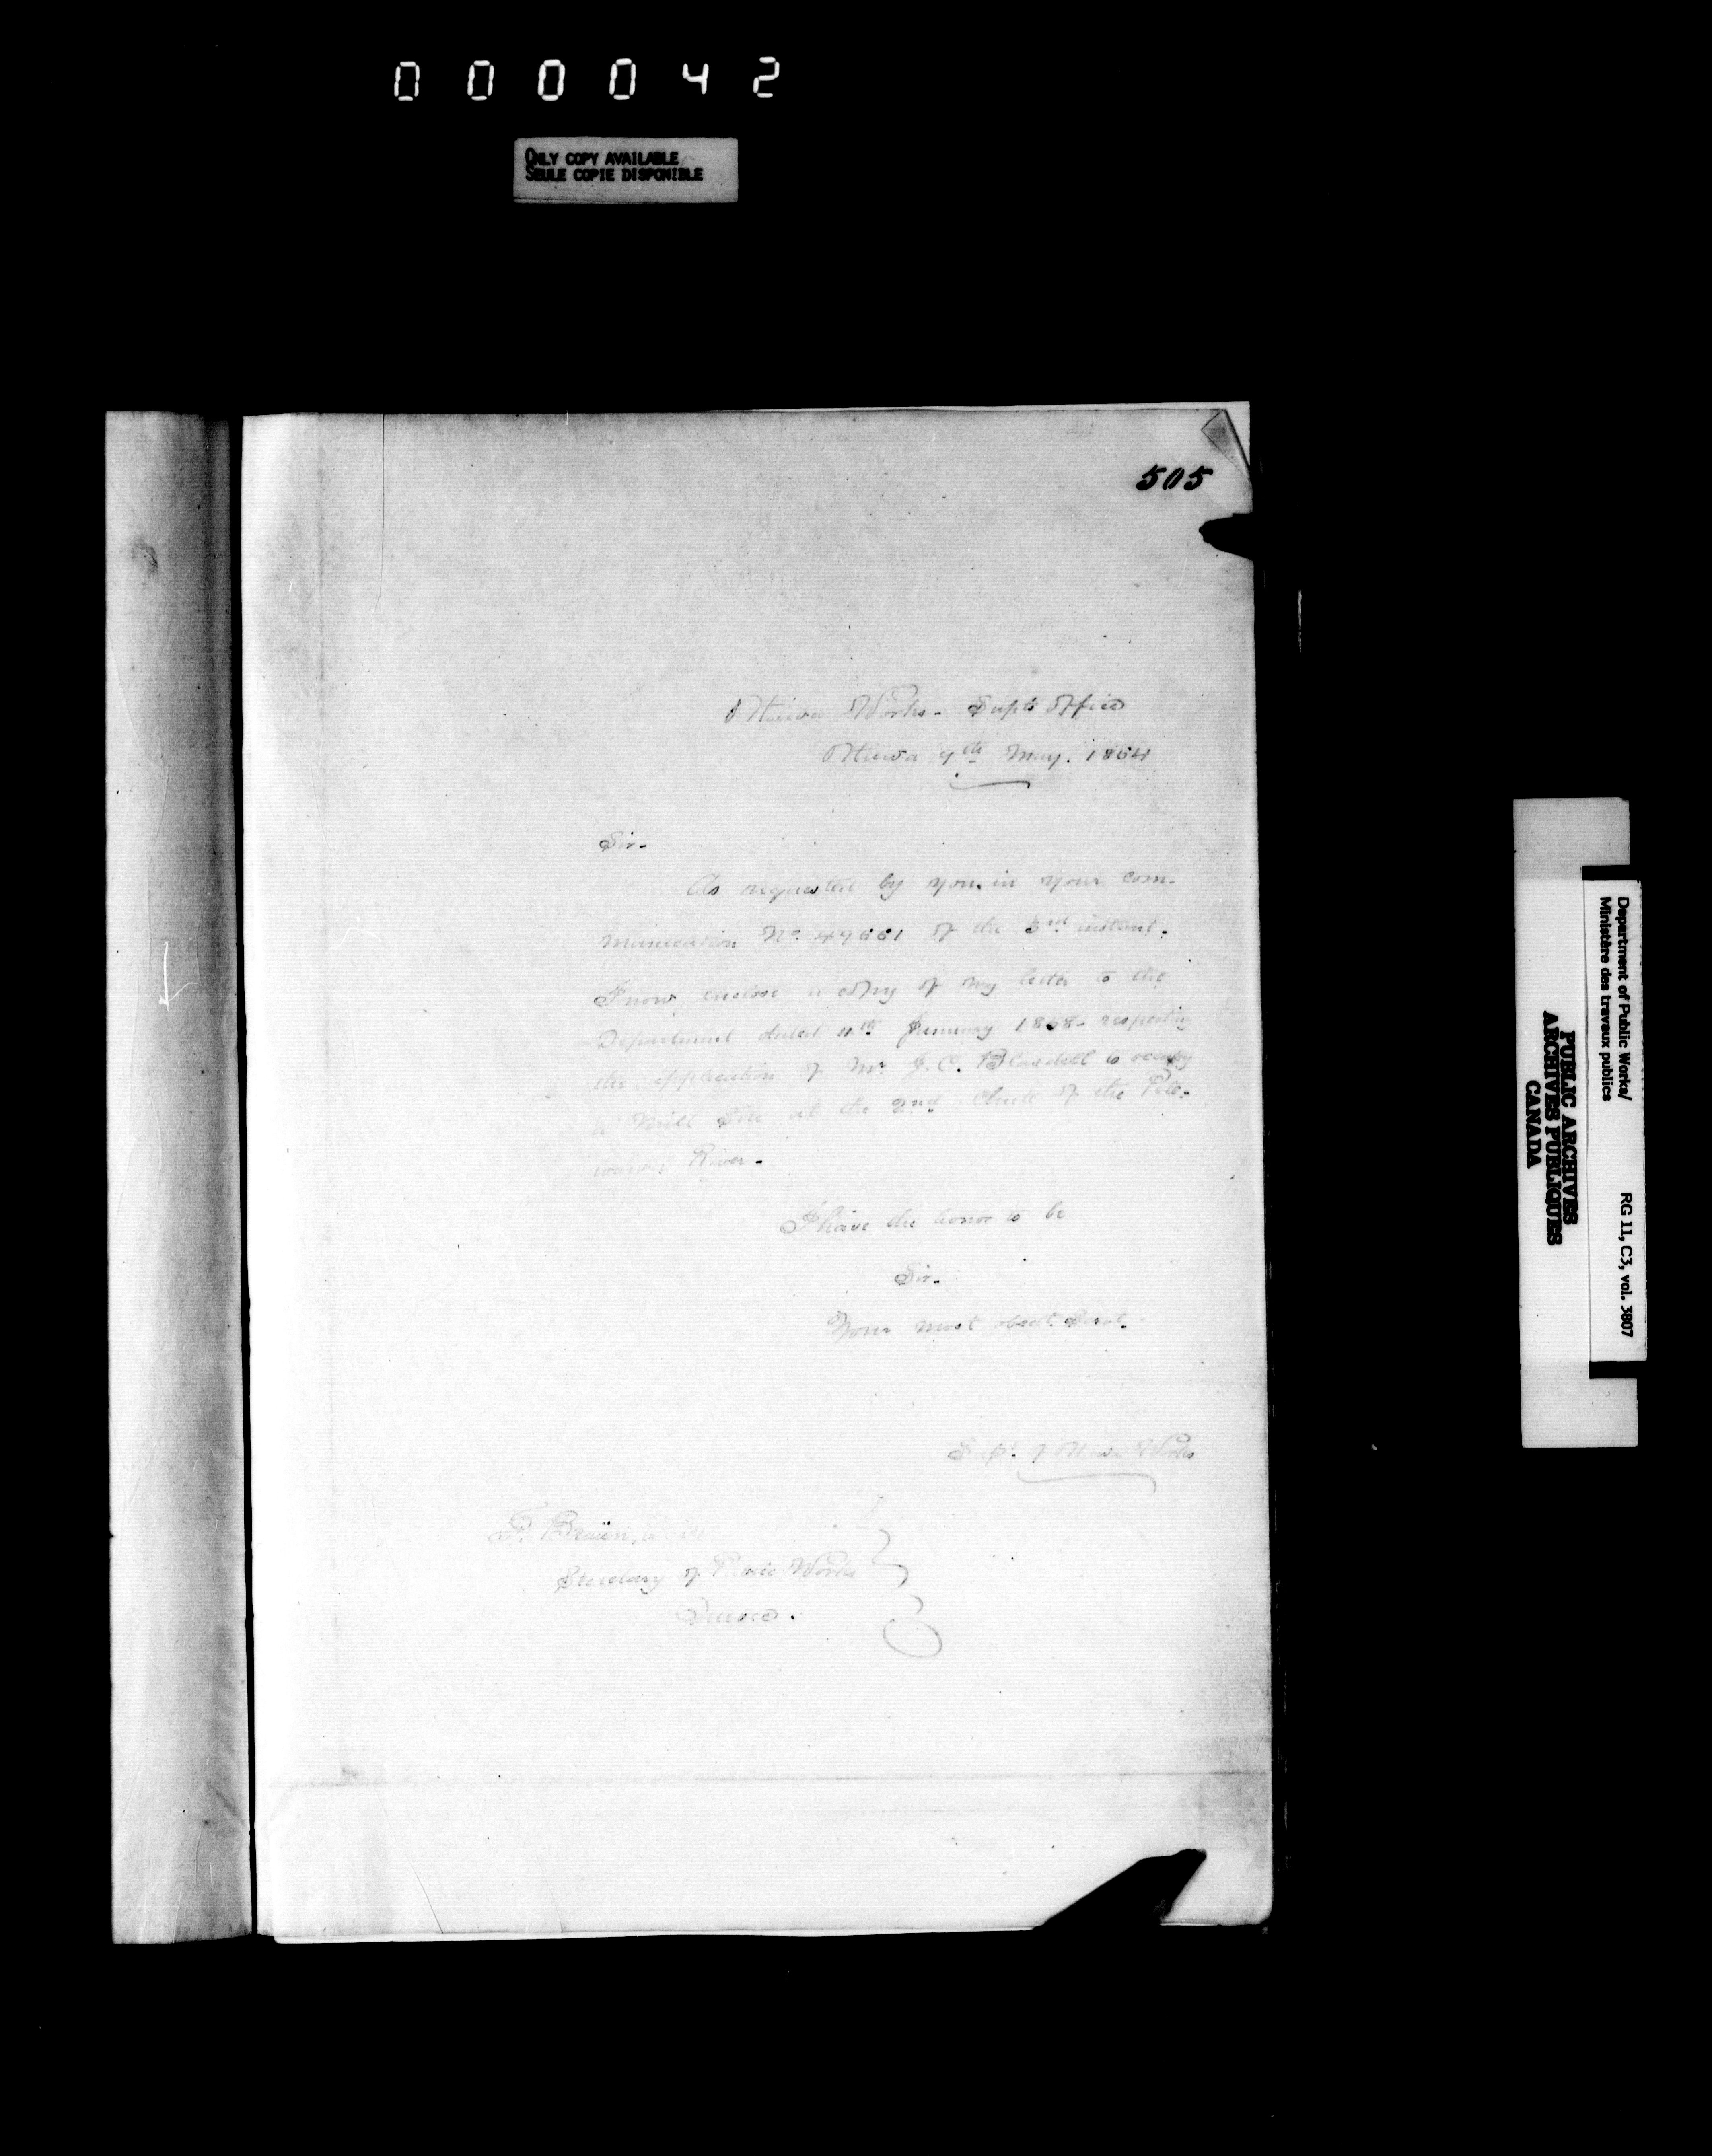 000042
ONLY COPY AVAILABLE
SEULE COPIE DISPONIBLE
505
Ottawa Works - Supts Office
Ottawa 7th May. 1864
Sir-
As requested by you in your com-
munication No. 49661 of the 3rd instant.
I now enclose a copy of my letter to the
Department dated 11th January 1858 - respecting
the application of Mr. J. C. Blasdell to occupy
a Mill Site at the 2nd Chute of the Pete-
wawa River-
I have the honor to be
Sir-
Your most obedt. Servt.
Supt. Ottawa Works
F. Braün,
Secretary of Public Works
Quebec.
Department of Public Works/
Ministère des travaux publics
RG 11, C3, vol. 3807
PUBLIC ARCHIVES
ARCHIVES PUBLIQUES
CANADA